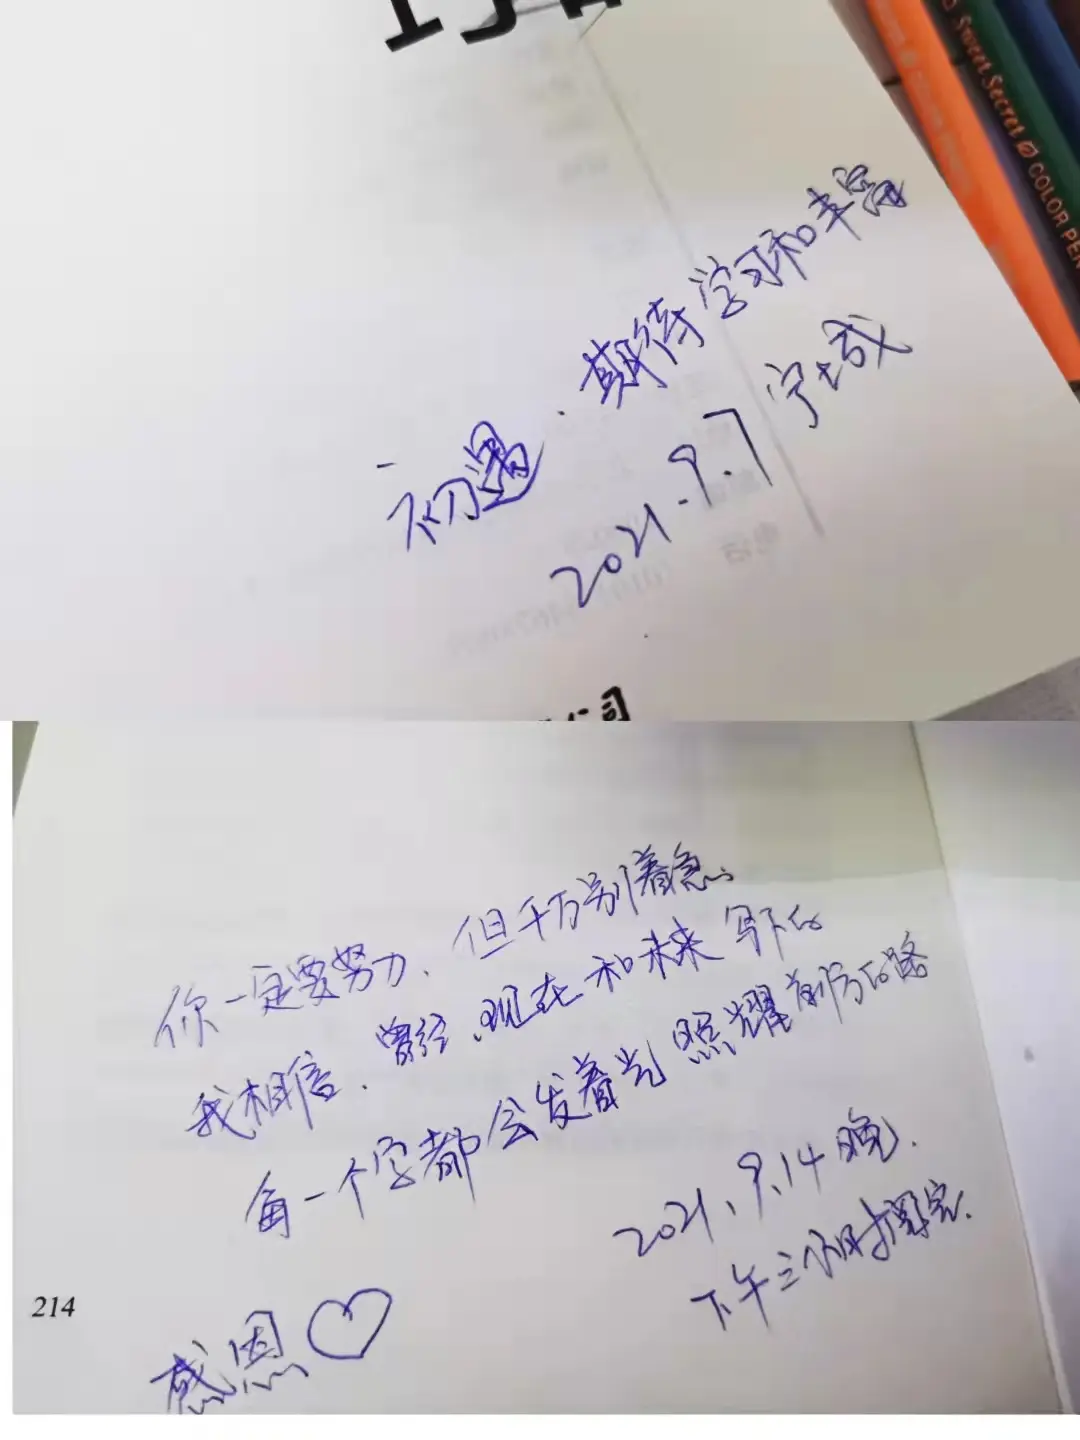 Sweet Secret COLOR PEN
初遇、期待学习和丰富
2021.9.7 宁城
公司
你一定要努力、但千万别着急、
我相信、曾经、现在和未来写下的
每一个字都会发着光照耀前方的路
2021.9.14晚.
下午三小时阅完.
214
感恩♡